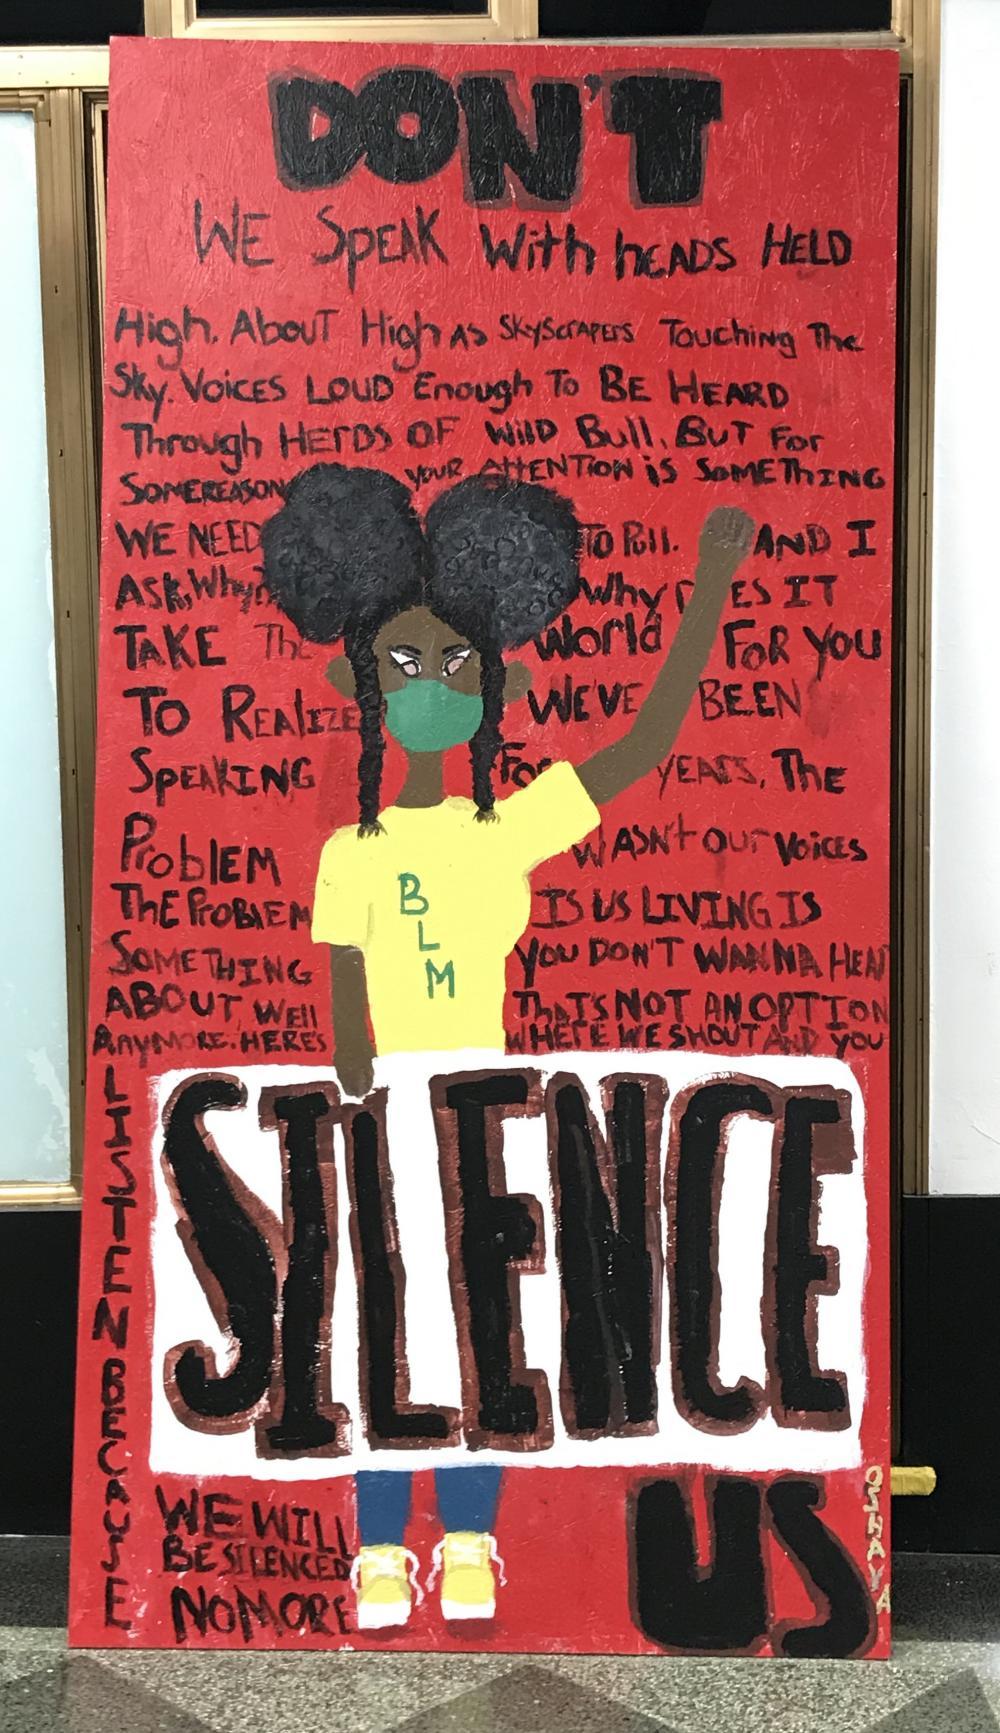 DON'T
WE SPEAK With hEADS HELD
High. ABOUT High AS SkyScrAPERS Touching The
Sky. VOICES LOUD Enough To BE HEARD
Through HERDS OF WilD Bull. BUT For
SOMEREASON YOUR ATTENTION iS SOMEThING
WE NEED TO Pull. AND I
ASk, Why? Why DOES IT
TAKE The World FOR YOU
TO REALIZE WE'VE BEEN
SPEAKING For YEARS. The
ProblEM WASN't our Voices
ThE ProblEM IS US LIVING IS
SOMETHING YOU DON'T WANNA HEAR
ABOUT WEll ThAT'S NOT AN OPTION
AnyMORE. HERE'S WHERE WE SHOUT AND YOU
LISTEN BECAUSE
B
L
M
SILENCE
WE WILL
BE SILENCED
NO MORE
US
OSHAYA